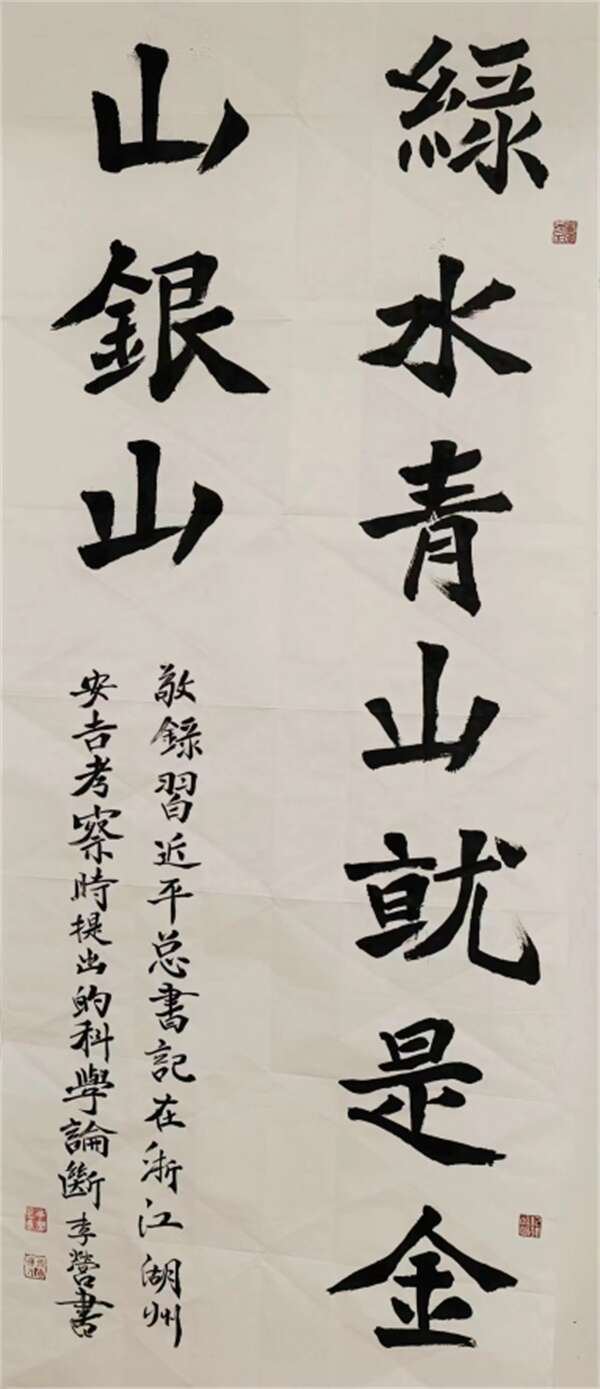 綠水青山就是金
山銀山
敬錄習近平总書記在浙江湖州
安吉考察時提出的科學論斷李營書